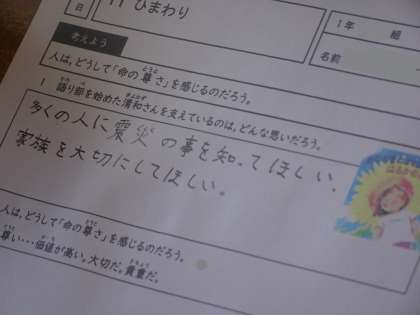 日
11 ひまわり
1年 組
名前
考えよう
人は、どうして「命の尊さ」を感じるのだろう。
1 語り部を始めた清和さんを支えているのは、どんな思いだろう。
多くの人に震災の事を知ってほしい、
家族を大切にしてほしい。
人は、どうして「命の尊さ」を感じるのだろう。
尊い…価値が高い。大切だ。貴重だ。